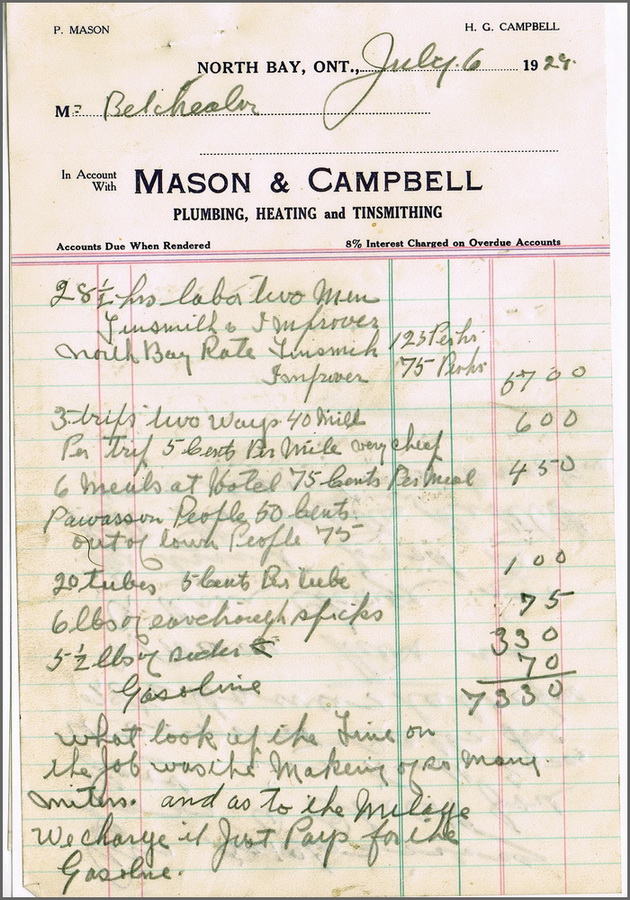 P. MASON H. G. CAMPBELL
NORTH BAY, ONT., July. 6 1929.
Mr Belcheabr
In Account
With MASON & CAMPBELL
PLUMBING, HEATING and TINSMITHING
Accounts Due When Rendered 8% Interest Charged on Overdue Accounts
28½ hrs labor two Men
Tinsmith & Improver
North Bay Rate Tinsmith 125 Per hr
Improver 75 Per hr 57 00
3 trips two ways 40 Mill 6 00
Per trip 5 Cents Per Mile very chief 4 50
6 Meals at Hotel 75 Cents Per Meal
Pawasson People 50 Cents
out of town People 75
20 tubes 5 Cents Per tube 1 00
6 lbs of eavetrough spicks 75
5½ lbs of 3 30
Gasoline 70
73 30
what look up the Time on
the Job was the Making of so many
miters. and as to the Milage
We charge it Just Pays for the
Gasoline.